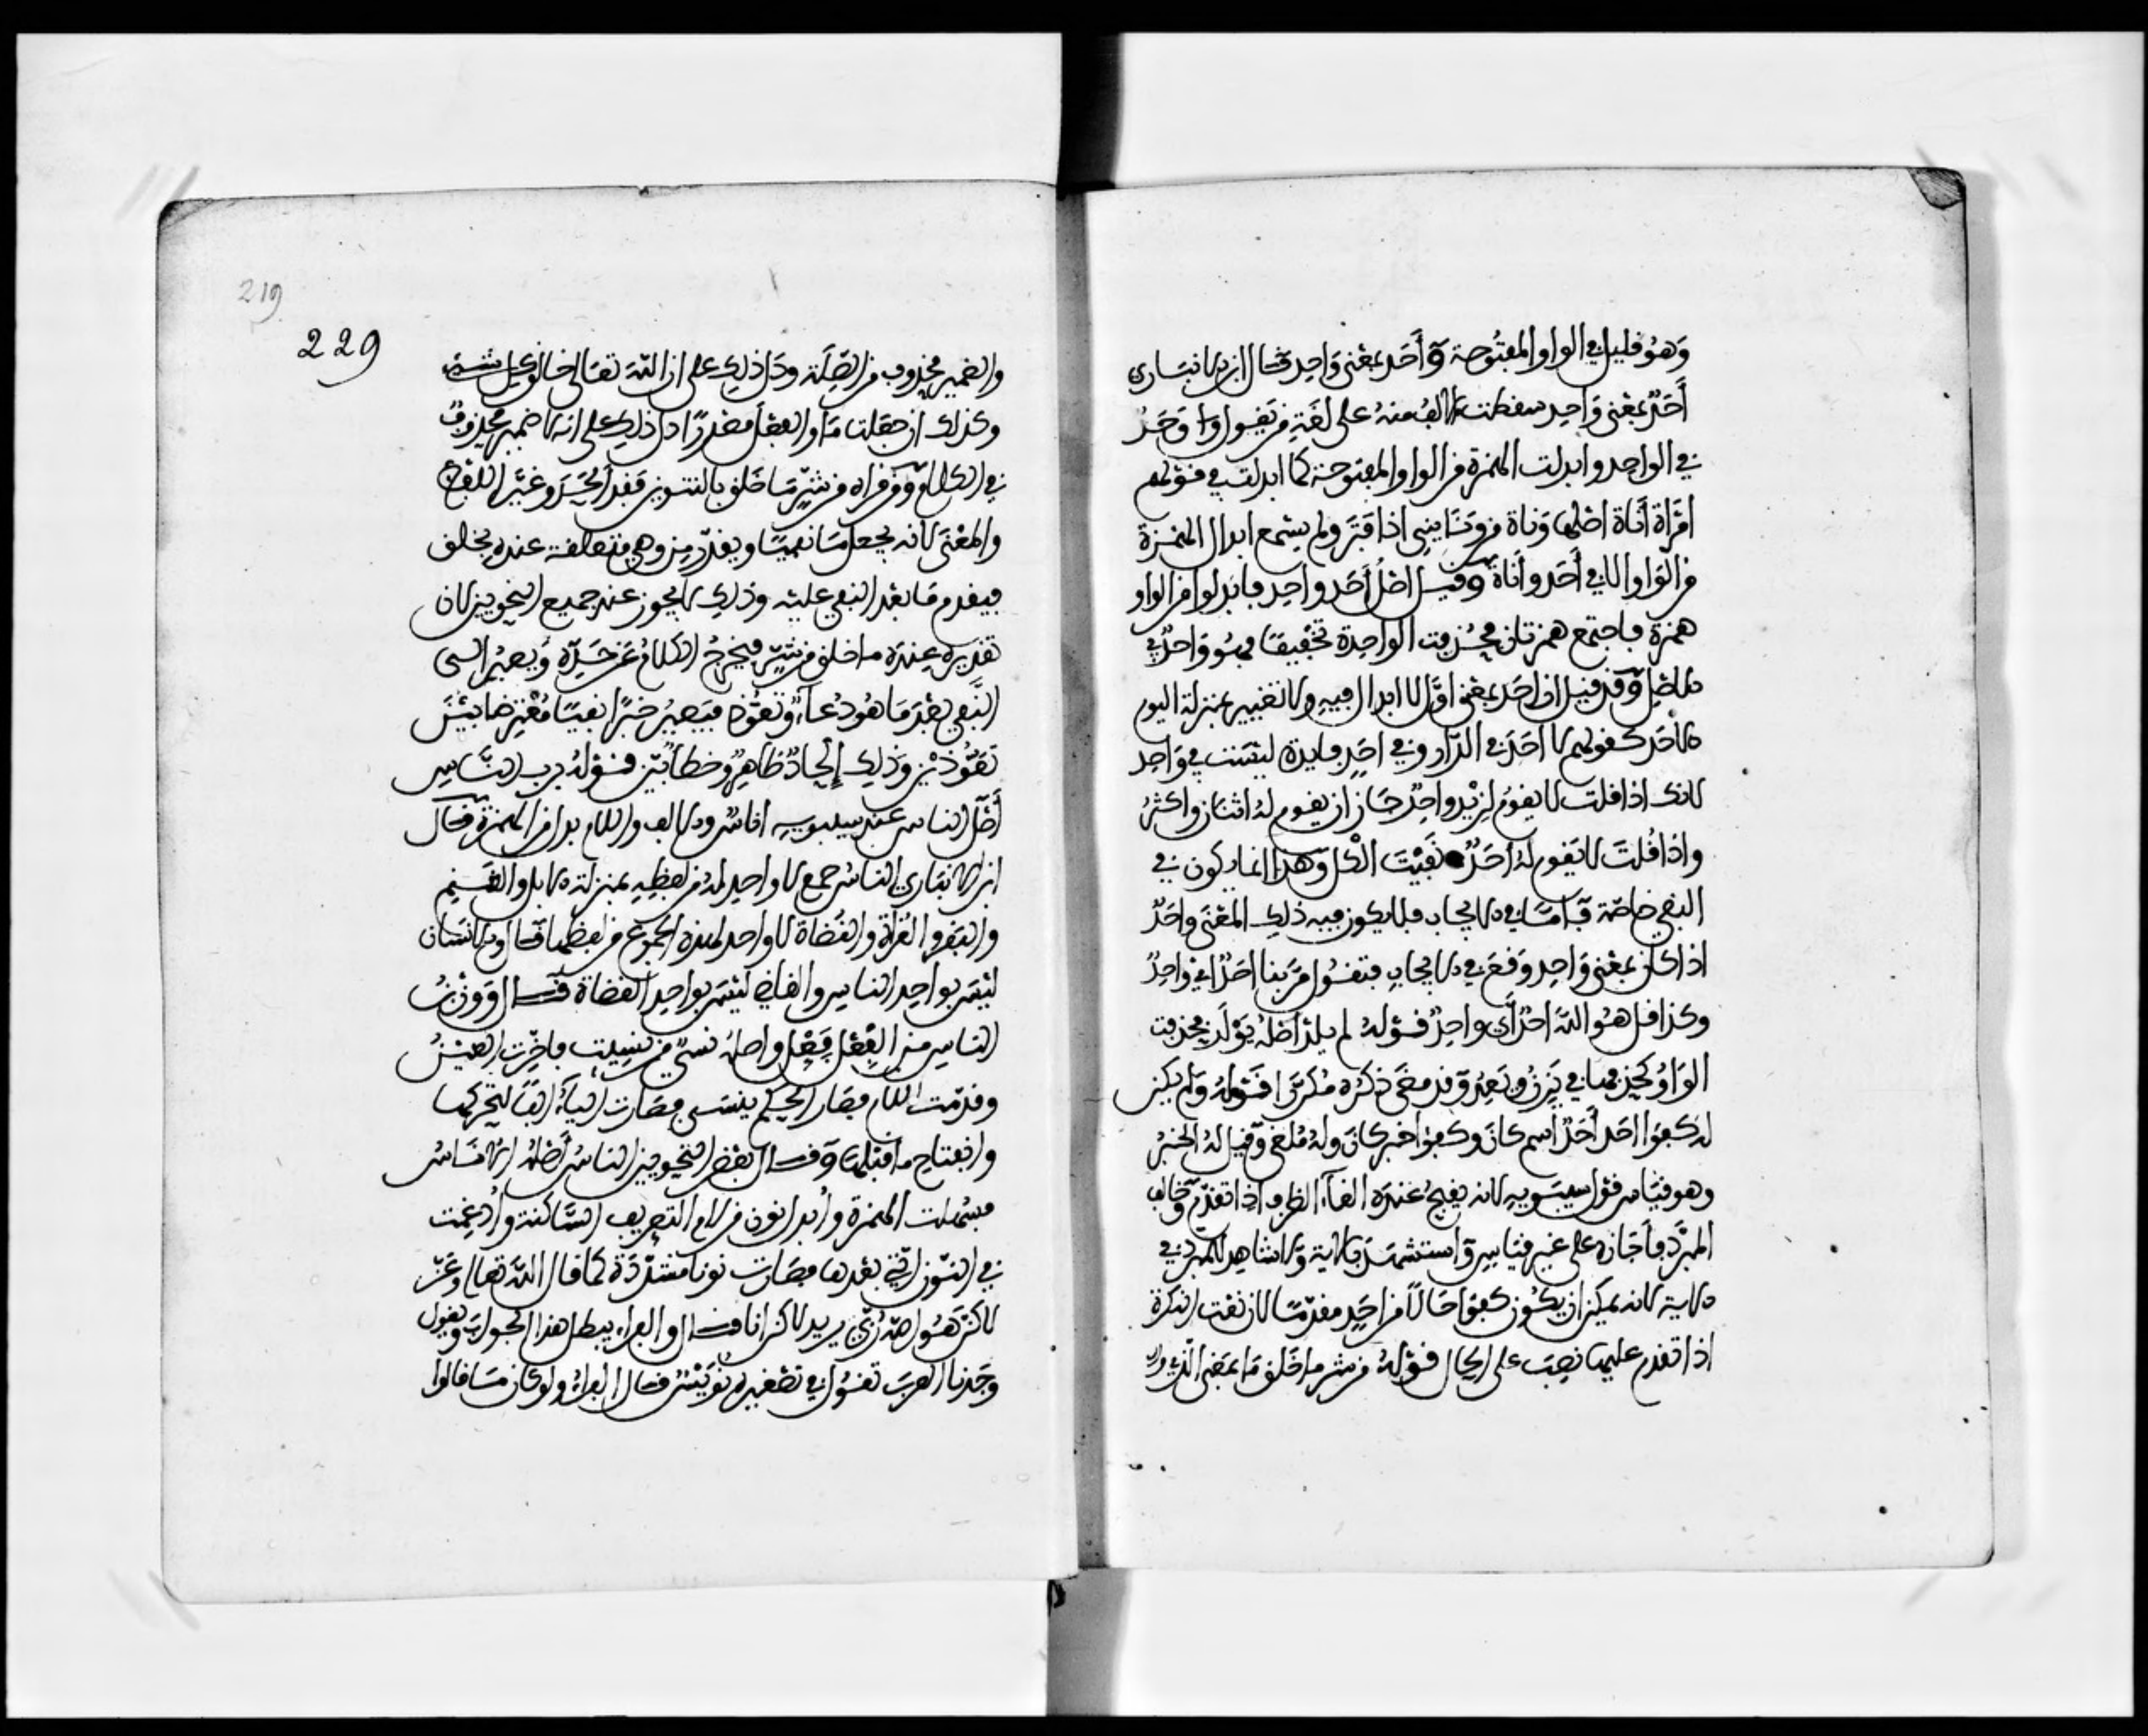 وهو قليل في الواو المفتوحة وأحد بمعنى واحد وقال ابن الانباري
أحد بمعنى واحد سقطت الالف منه على لغة من يقول وحد
في الواحد وابدلت الهمزة من الواو المفتوحة كما ابدلت في قولهم
امرأة أناة اصلها وناة من ونا يني اذا فتر ولم يسمع ابدال الهمزة
من الواو الا في أحد وأناة وقيل اصل أحد واحد فابدلوا من الواو
همزة فاجتمع همزتان فحذفت الواحدة تخفيفا فهو واحد في
الاصل وقد قيل ان احد بمعنى اول لا ابدال فيه ولا تغيير بمنزلة اليوم
الاحد كقولهم لا احد في الدار وفي احد فايدة ليست في واحد
لانك اذا قلت لا يقوم لزيد واحد جاز ان يقوم له اثنان واكثر
واذا قلت لا يقوم له احد نفيت الكل وهذا انما يكون في
النفي خاصة فاما في الايجاب فلا يكون فيه ذلك المعنى واحد
اذا كان بمعنى واحد وقع في الايجاب فتقول مر بنا احد اي واحد
وكذا قل هو الله احد أي واحد قوله لم يلد اصله يولد فحذفت
الواو كحذفها في يرث ويعد وقد مضى ذكره مكررا قوله ولم يكن
له كفوا احد أحد اسم كان وكفوا خبر كان وله ملغى وقيل له الخبر
وهو قياس قول سيبويه لانه يقبح عنده الغاء الظرف اذا تقدم وخالف
المبرد فأجازه على غير قياس واستشهد بالاية ولا شاهد للمبرد في
الاية لانه يمكن ان يكون كفوا حالا من احد مقدما لان نعت النكرة
اذا تقدم عليها نصب على الحال قوله من شر ما خلق ما بمعنى الذي
219
229
والضمير محذوف من الصلة ودل ذلك على ان الله تعالى خالق كل شيء
وكذلك ان جعلت ما والفعل مصدرا دل ذلك على انه لا ضمير محذوف
في الكلام ومن قراه من شر ما خلق بالتنوين فقد ألحد وغير اللفظ
والمعنى لانه يجعل ما نفيا ويقدر من وهي متعلقة عنده بخلق
فيقدم ما بعد النفي عليه وذلك لا يجوز عند جميع النحويين لان
تقديره عنده ما خلق من شر فيخرج الكلام عن حده ويصير الى
النفي بعد ما هو دعاء وتعوذ فيصير خبرا نفيا معترضا بين
تعوذين وذلك إلحاد ظاهر وخطأ بين قوله برب الناس
أصل الناس عند سيبويه اناس والالف واللام بدل من الهمزة وقال
ابن الانباري الناس جمع لا واحد له من لفظه بمنزلة الابل والغنم
والنفر والغزاة والقضاة لا واحد لهذه الجموع من لفظها قال والانسان
ليس بواحد الناس والقاضي ليس بواحد القضاة قال ووزن
الناس من الفعل فعل واصله نسي من نسيت فاخرت العين
وقدمت اللام فصار الحكم ينسى فصارت الياء الفا لتحركها
وانفتاح ما قبلها وقال بعض النحويين الناس أصله الاناس
فسهلت الهمزة وأبدل نون من لام التعريف الساكنة وأدغمت
في النون التي بعدها فصارت نونا مشددة كما قال الله تعالى وعز
لاكن هو الله ربي يريد لاكن انا قال والفراء يبطل هذا الجواب ويقول
وجدنا العرب تقول في تصغيره نويس قال الفراء ولو كان ما قالوا